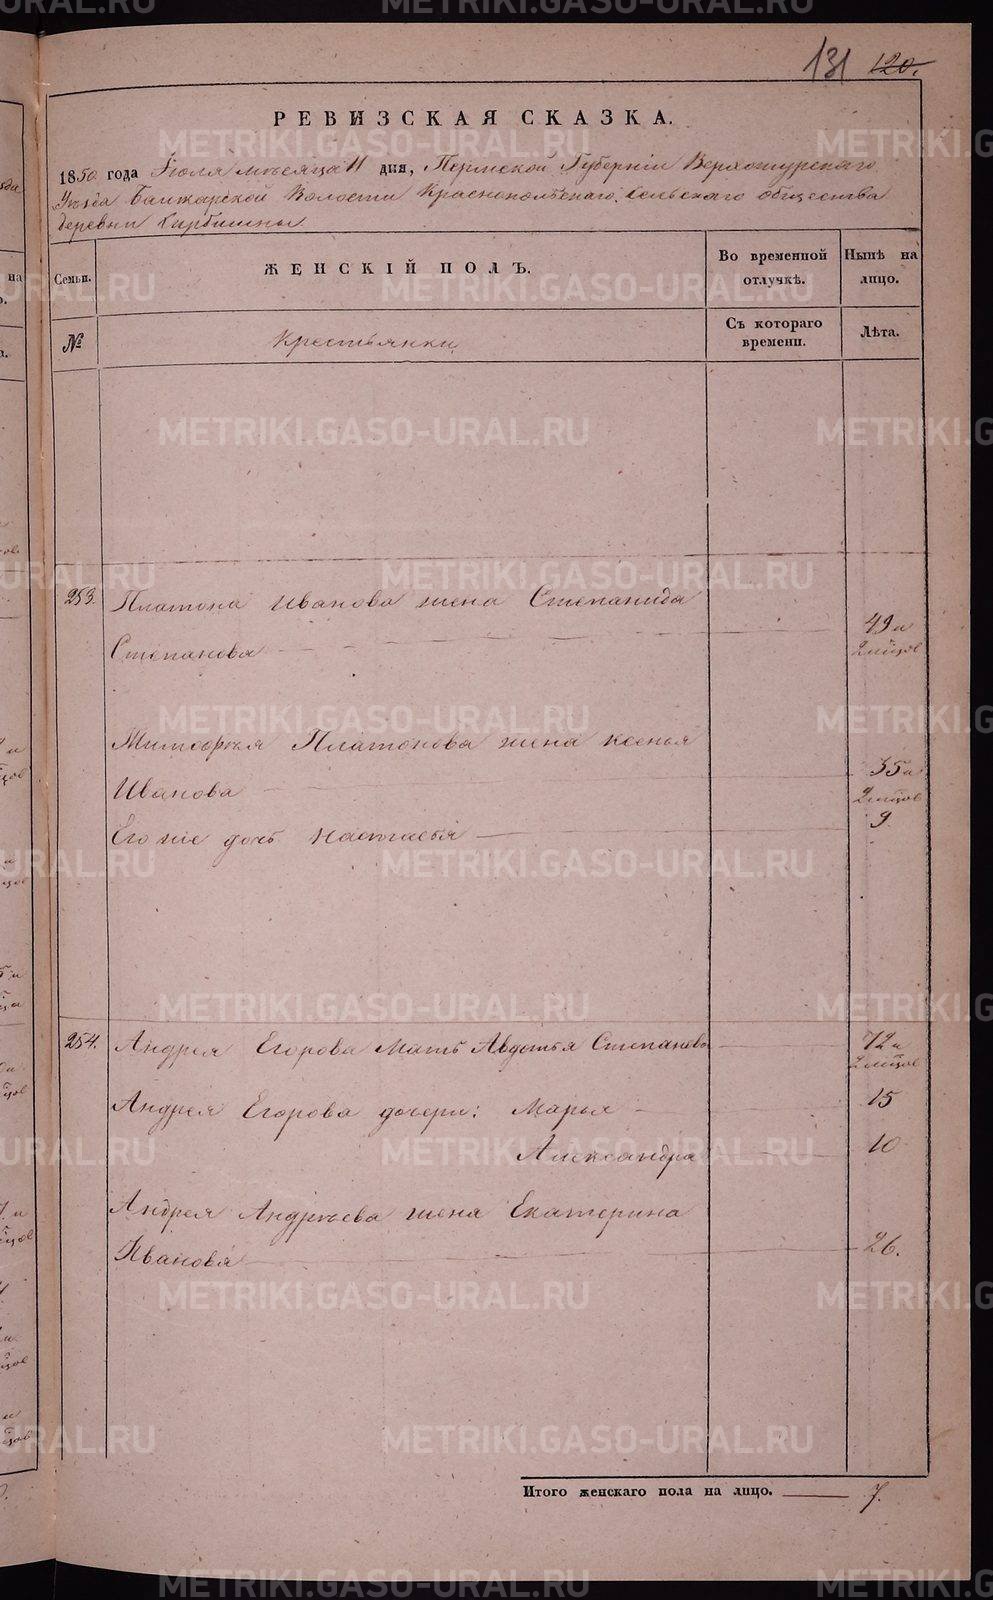 131 120.
РЕВИЗСКАЯ СКАЗКА.
1850 года Іюля мѣсяца 11 дня, Пермской Губерніи Верхотурскаго
Уѣзда Башкарской Волости Краснопольскаго сельскаго общества
деревни
Семьи. ЖЕНСКІЙ ПОЛЪ. Во временной отлучкѣ. Нынѣ на лицо.
№ Крестьянки Съ котораго времени. Лѣта.
253. Платона Иванова жена Степанида
Степанова 49 и
2 мцов
Митофья Платонова жена Ксенья
Иванова 35 и
2 мцов
Его же дочь Настасья 9
254. Андрея Егорова мать Авдотья Степанова 72 и
2 мцов
Андрея Егорова дочери: Марья 15
Александра 10
Андрея Андреева жена Екатерина
Иванова 26.
Итого женскаго пола на лицо. 7.
METRIKI.GASO-URAL.RU